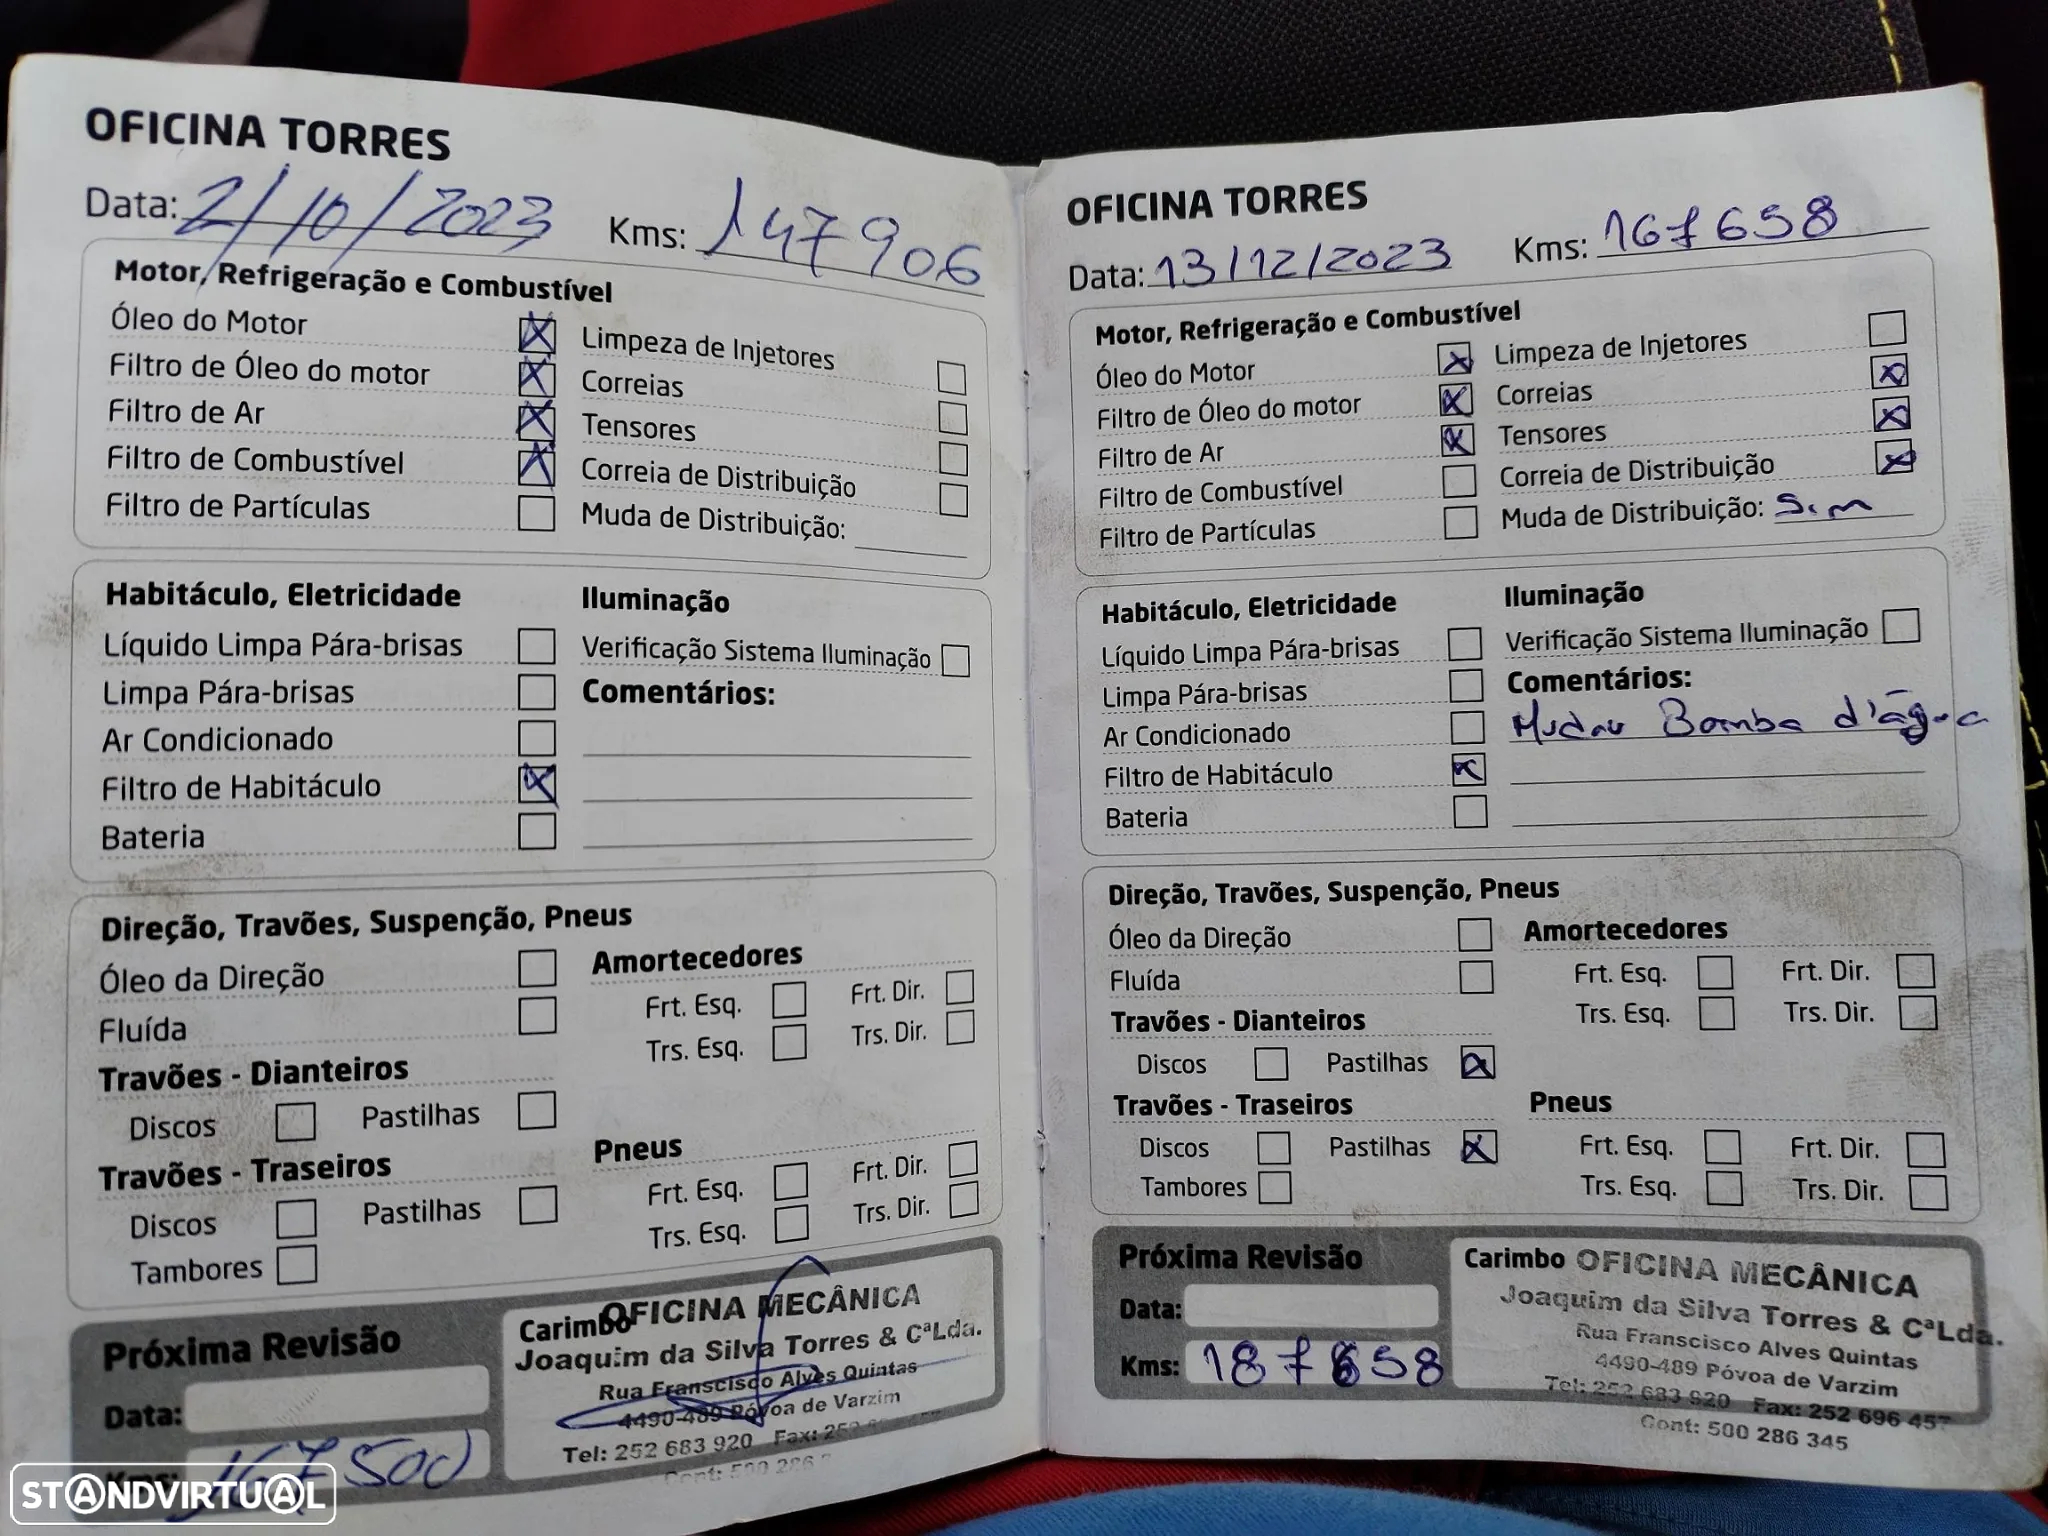 OFICINA TORRES
Data: 2/10/2023 Kms: 147906
Motor, Refrigeração e Combustível
Óleo do Motor X Limpeza de Injetores
Filtro de Óleo do motor X Correias
Filtro de Ar X Tensores
Filtro de Combustível X Correia de Distribuição
Filtro de Partículas Muda de Distribuição:
Habitáculo, Eletricidade Iluminação
Líquido Limpa Pára-brisas Verificação Sistema Iluminação
Limpa Pára-brisas Comentários:
Ar Condicionado
Filtro de Habitáculo X
Bateria
Direção, Travões, Suspenção, Pneus
Óleo da Direção Amortecedores
Fluída Frt. Esq. Frt. Dir.
Trs. Esq. Trs. Dir.
Travões - Dianteiros
Discos Pastilhas
Travões - Traseiros Pneus
Discos Pastilhas Frt. Esq. Frt. Dir.
Tambores Trs. Esq. Trs. Dir.
Próxima Revisão
Data:
Kms: 167500
Carimbo OFICINA MECÂNICA
Joaquim da Silva Torres & CªLda.
Rua Franscisco Alves Quintas
4490-489 Póvoa de Varzim
Tel: 252 683 920 Fax:
Cont: 500 286
STANDVIRTUAL
OFICINA TORRES
Data: 13/12/2023 Kms: 167658
Motor, Refrigeração e Combustível
Óleo do Motor X Limpeza de Injetores
Filtro de Óleo do motor X Correias X
Filtro de Ar X Tensores X
Filtro de Combustível Correia de Distribuição X
Filtro de Partículas Muda de Distribuição: Sim
Habitáculo, Eletricidade Iluminação
Líquido Limpa Pára-brisas Verificação Sistema Iluminação
Limpa Pára-brisas Comentários:
Ar Condicionado Mudar Bomba d'água
Filtro de Habitáculo X
Bateria
Direção, Travões, Suspenção, Pneus
Óleo da Direção Amortecedores
Fluída Frt. Esq. Frt. Dir.
Travões - Dianteiros Trs. Esq. Trs. Dir.
Discos Pastilhas X
Travões - Traseiros Pneus
Discos Pastilhas X Frt. Esq. Frt. Dir.
Tambores Trs. Esq. Trs. Dir.
Próxima Revisão
Data:
Kms: 187658
Carimbo OFICINA MECÂNICA
Joaquim da Silva Torres & CªLda.
Rua Franscisco Alves Quintas
4490-489 Póvoa de Varzim
Tel: 252 683 920 Fax: 252 696 457
Cont: 500 286 345